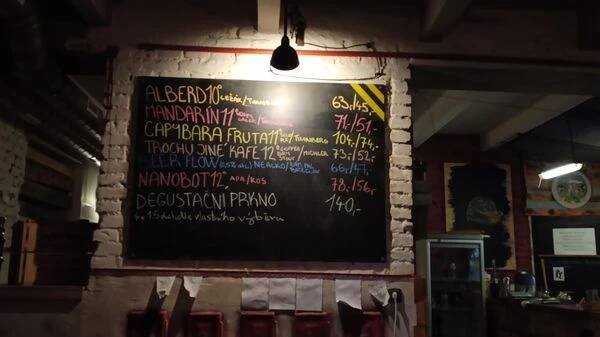 ALBERD 10° LEŽÁK/ 63,-/45,-
MANDARIN 11° 71,-/51,-
CAPYBARA FRUTA 11° 104,-/74,-
TROCHU JINÉ KAFE 12° COFFEE 73,-/52,-
BEER FLOW NEALKO/ 66,-/47,-
NANOBOT 12° APA/KOS 78,-/56,-
DEGUSTAČNÍ PRKNO 140,-
1.5 dcl dle vlastního výběru